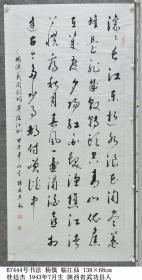 滚滚长江东逝水浪花淘尽英
雄是非成败转头空青山依旧
在几度夕阳红白发渔樵江
渚上惯看秋月春风一壶浊酒喜相
逢古今多少事都付笑谈中
B7444号书法 杨慎 临江仙 138×68cm
桂达杰 1943年7月生 陕西省武功县人